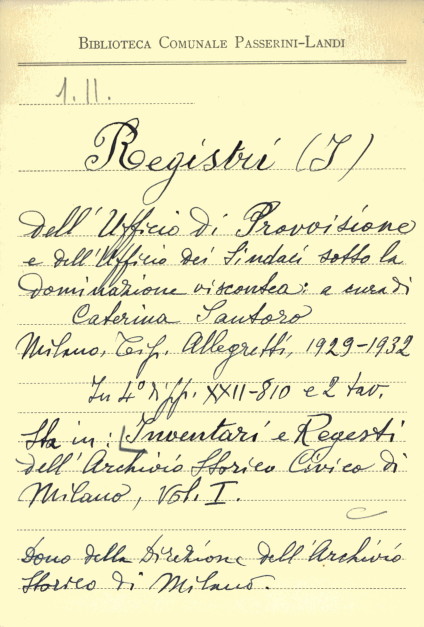 BIBLIOTECA COMUNALE PASSERINI-LANDI
1.II.
Registri (I)
dell'Ufficio di Provvisione
e dell'Ufficio dei Sindaci sotto la
dominazione viscontea: a cura di
Caterina Santoro
Milano, Tip. Allegretti, 1929-1932
In 4° di pp. XXII-810 e 2 tav.
Sta in: Inventari e Regesti
dell'Archivio Storico Civico di
Milano, Vol. I.
Dono della Direzione dell'Archivio
Storico di Milano.